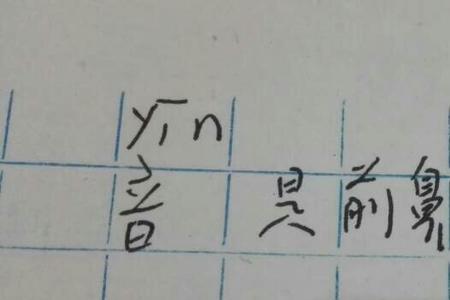 yīn
音 是前鼻